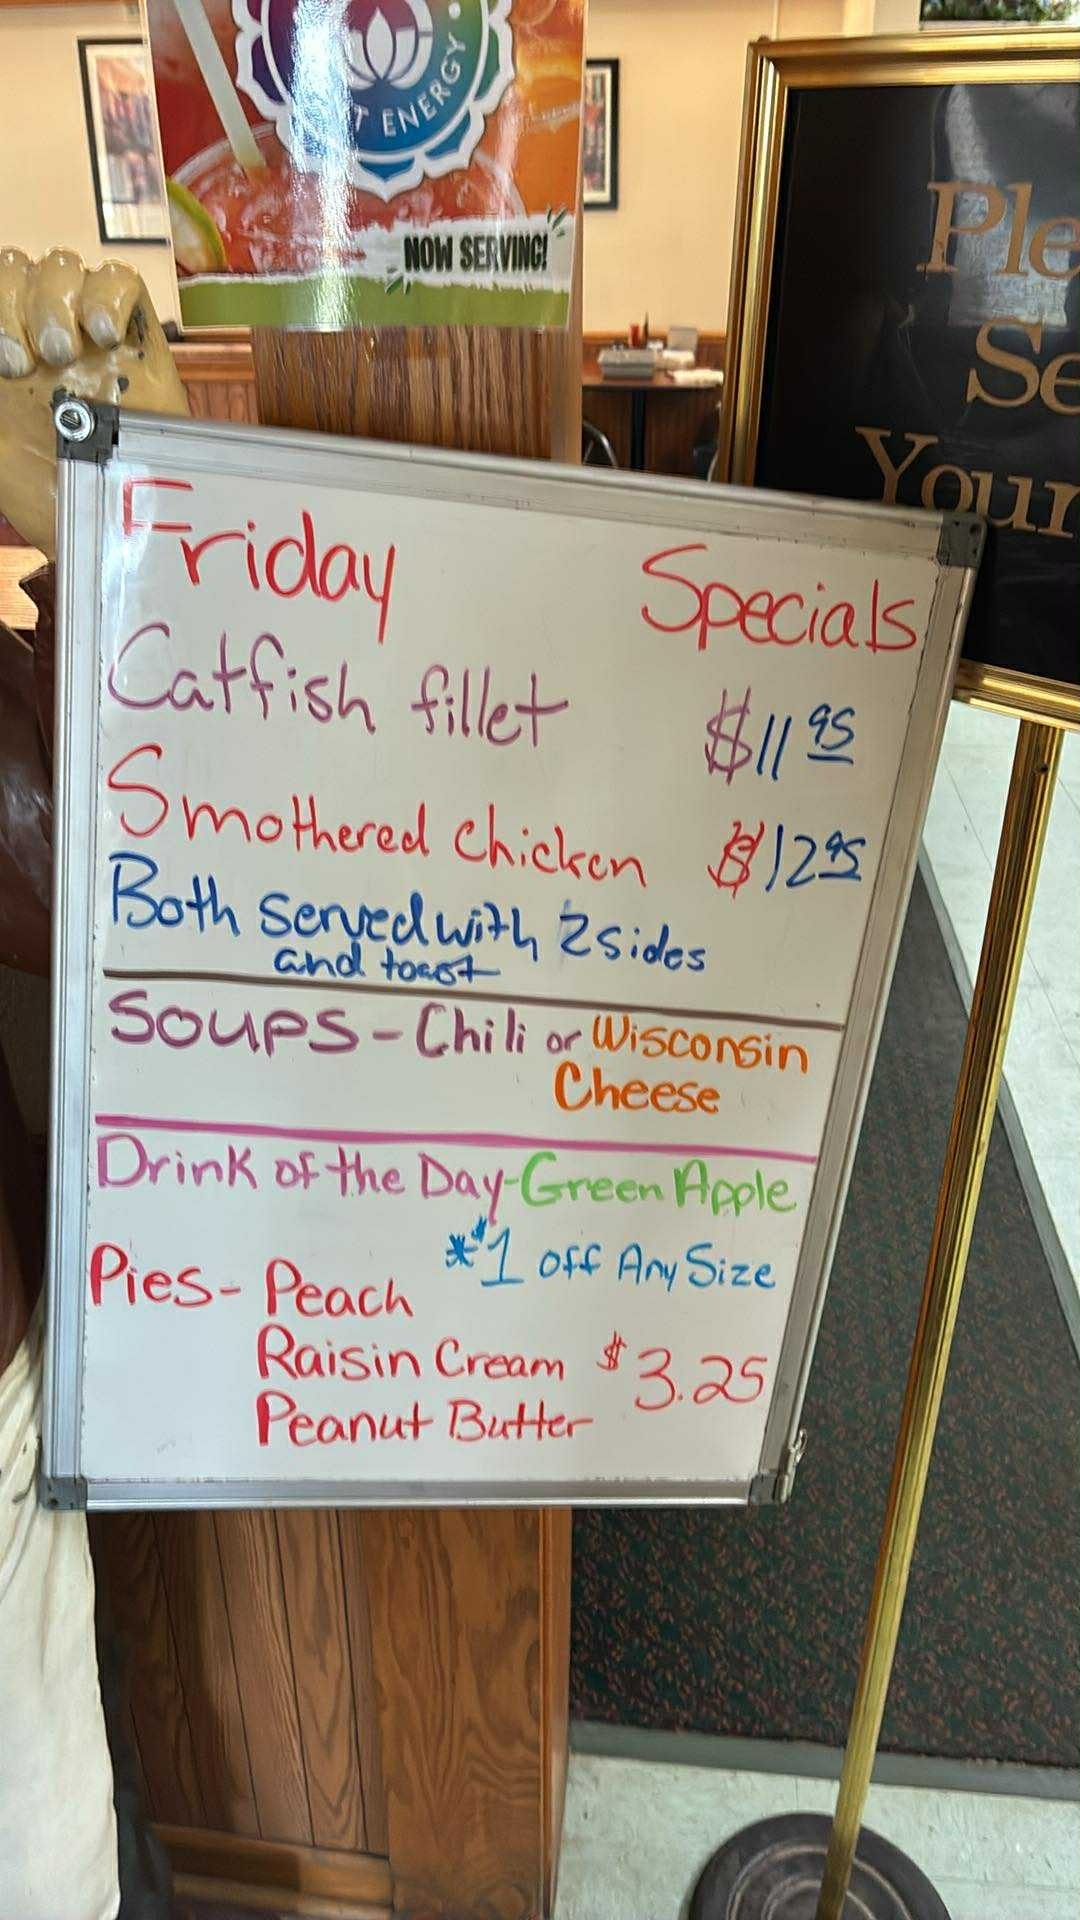 T ENERGY
NOW SERVING!
Your
Friday Specials
Catfish fillet $11 95
Smothered Chicken $12 95
Both served with 2 sides
and toast
SOUPS - Chili or Wisconsin
Cheese
Drink of the Day - Green Apple
*$1 off Any Size
Pies - Peach
Raisin Cream $3.25
Peanut Butter